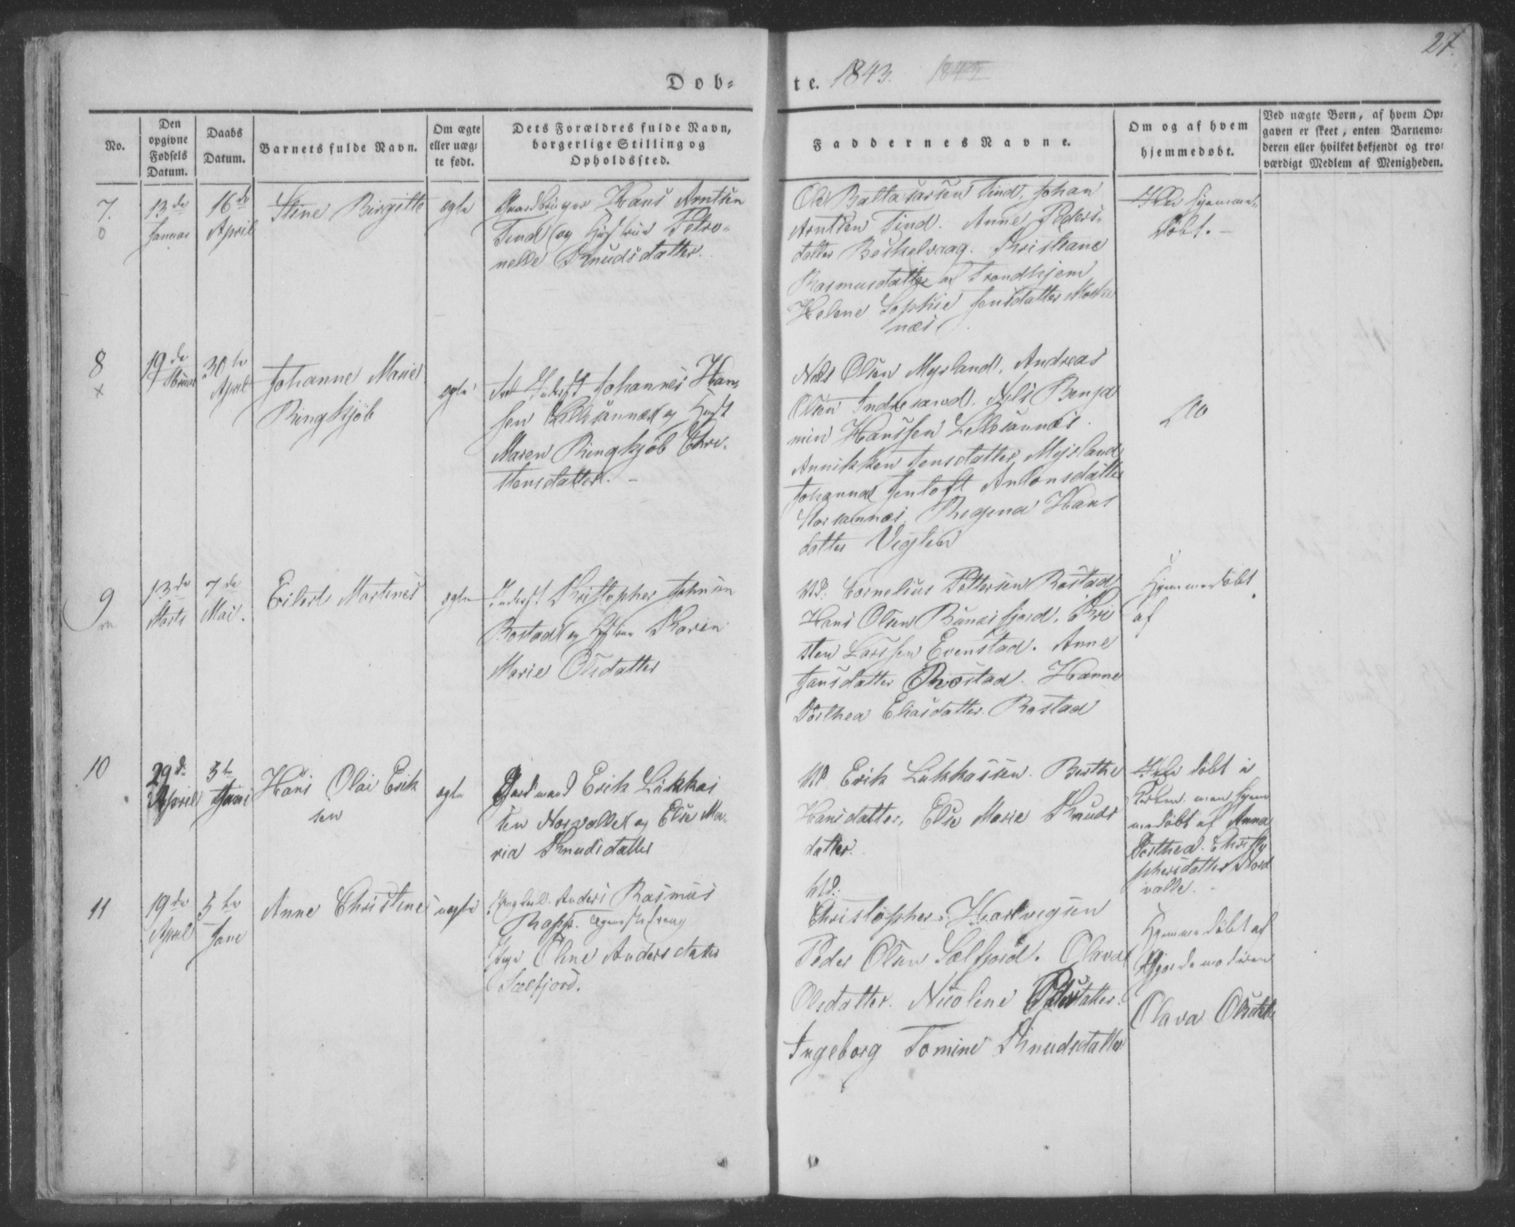 27.
Døb-
te. 1843. 1842
No.
Den opgivne Fødsels Datum.
Daabs Datum.
Barnets fulde Navn.
Om ægte eller uæg-
te født.
Dets Forældres fulde Navn,
borgerlige Stilling og
Opholdssted.
Faddernes Navne.
Om og af hvem
hjemmedøbt.
Ved uægte Børn, af hvem Op-
gaven er skeet, enten Barnemo-
deren eller hvilket bekjendt og tro-
værdigt Medlem af Menigheden.
7.
13de
Januar
16de
April
Stine Birgitte
ægte
Hans Arntsen
Tind og Hustrue Petro-
nelle Knudsdatter.
Ole Baltasarsen Tind, Johan
Arntsen Tind. Anne Peders-
datter Kristiane
Rasmusdatter Trondhjem
Helene Sophie Jensdatter
næs
Ikke hjemme-
døbt.
8
19de
30te
April
Johanne Marie
Ringkjøb
ægte
Johannes Han-
sen og Hust
Maren Ringkjøb Chri-
stensdatter.
Nils Olsen Mysland, Andreas
Olsen Indresand. Nils Benja
min Hanssen
Anniken Jensdatter Mysland
Johanna Jentoft Antonsdatter
Regina Hans
datter
do
9
13de
Marts
7de
Mai.
Eilert Martines
ægte
Kristopher Johnsen
Rostad og Hustrue Karen
Marie Olsdatter
Cornelius Pettersen Rostad
Hans Olsen Kri
sten Larssen Evenstad. Anne
Jansdatter Rostad. Hanne
Dorthea Eliasdatter Rostad
Hjemmedøbt
af
10
29de
April
5te
Juni
Hans Olai Erik
sen
ægte
Gaardmand Erik Lukkas
sen Norvalle og Else Ma-
ria Knudsdatter
Erik Lukkassen. Berthe
Hansdatter, Else Marie Knuds
datter.
døbt i
Kirken men hjem
medøbt af Anna
Dorthea Christo
phersdatter Nord
valle.
11
19de
April
5te
Juni
Anne Christine
uægte
Anders Rasmus
Rapp.
Pige Oline Andersdatter
Sælfjord.
Christopher Hartvigsen
Peder Olsen Sælfjord. Olava
Olsdatter. Nicoline Pedersdatter.
Ingeborg Tomine Knudsdatter
Hjemmedøbt af
Gjordemoderen
Olava Olsdatter